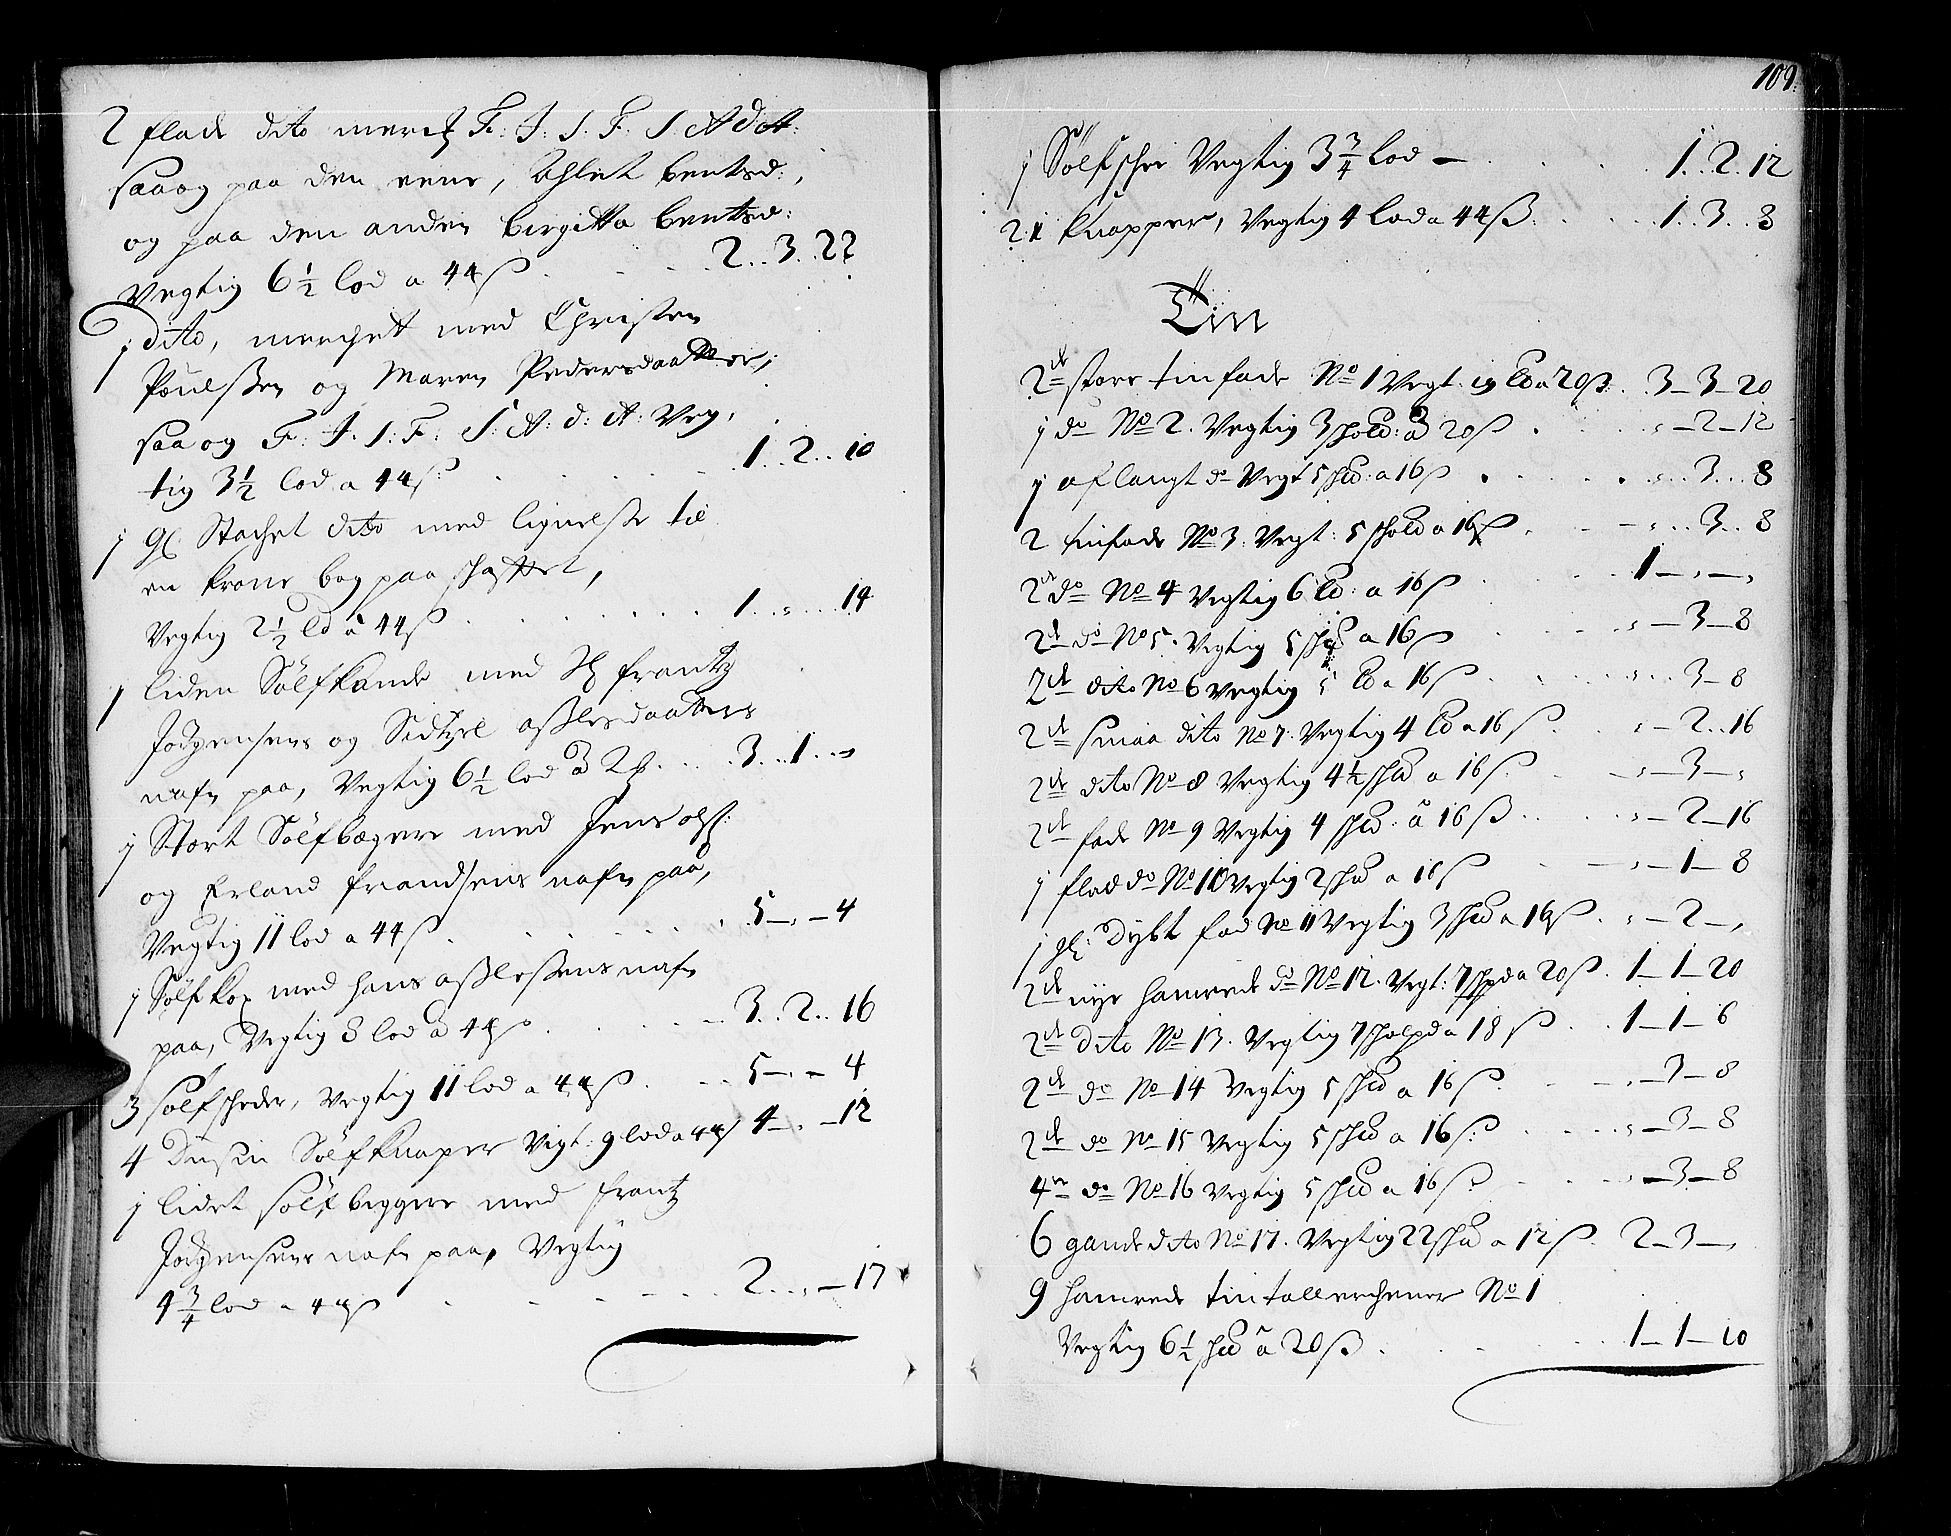 2 flade dito merch F: J: S: F: S: A d: A:
saa og paa den eene, Ahlet bentsd:,
og paa den anden birgitta bentsd:
Vegtig 6 1/2 lod a 44 ß . . . 2..3..22
1 dito, merchet med Christen
Poulssen og Maren Pedersdaatter,
saa og F. J. S: F: S: A: d: A: Veg,
tig 3 1/2 lod a 44 ß . . . 1..2..10
1 gl Stachet dito med lignelse til
en krone bag paa schafftet,
Vegtig 2 1/2 lod a 44 ß . . . 1..,..14
1 liden Sølfkande med frantz
Jørgensens og Sidtzel aslesdaatters
nafn paa, Vegtig 6 1/2 lod a 2 . . . 3..1..,
1 Stort Sølfbegere med Jens ols:
og Erland frandsens nafn paa,
Vegtig 11 lod a 44 ß . . . 5–,–4
1 Sølfkop med hans aslessens nafn
paa, Vegtig 8 lod a 44 ß . . . 3..2..16
3 sølfscheder, Vegtig 11 lod a 44 ß . . . 5–,–4
4 Dusin Sølfknaper Vegt: 9 lod a 44 ß 4–,–12
1 lidet sølfbeggere med frantz
Jørgensens nafn paa, Vegtig
4 3/4 lod a 44 ß . . . 2..,–17
109.
1 Sølfschee Vegtig 3 3/4 lod – . . . 1..2.12
21 Knapper, Vegtig 4 lod a 44 ß . . . 1..3..8
Tin
2de store tinfade No 1 Vegt: a 20 ß . . 3–3–20
1 do No 2. Vegtig 3 skold: a 20 ß . . . ,–2–12
1 aflangt do Vegt 5 a 16 ß . . . ,..3...8
2 tinfade No 3. Vegt: 5 skold a 16 ß . . . ,..3..8
2de do No 4 Vegtig 6 a 16 ß . . . 1–,–,
2de do No 5. Vegtig 5 a 16 ß . . . ,–3–8
2de dito No 6 Vegtig 5 a 16 ß . . . ,..3–8
2de smaa dito No 7. Vegtig 4 a 16 ß . . . ,–2..16
2de dito No 8 Vegtig 4 1/2 a 16 ß . . . ,–3–,
2de fade No 9 Vegtig 4 a 16 ß . . . ,–2–16
1 flad do No 10 Vegtig 2 a 16 ß . . . ,–1–8
1 gl: dybt fad No 11 Vegtig 3 a 16 ß . ,–2–,
2de nye hamrede do No 12. Vegt: 7 a 20 ß . 1–1–20
2de dito No 13. Vegtig 7 a 18 ß . . 1–1–6
2de do No 14 Vegtig 5 a 16 ß . . . ,–3–8
2de do No 15 Vegtig 5 a 16 ß . . . ,–3–8
4re do No 16 Vegtig 5 a 16 ß . . . ,–3–8
6 gamle dito No 17. Vegtig 22 a 12 ß . 2–3–,
9 hamrede tintallerchener No 1
Vegtig 6 1/2 a 20 ß . . . 1–1–10